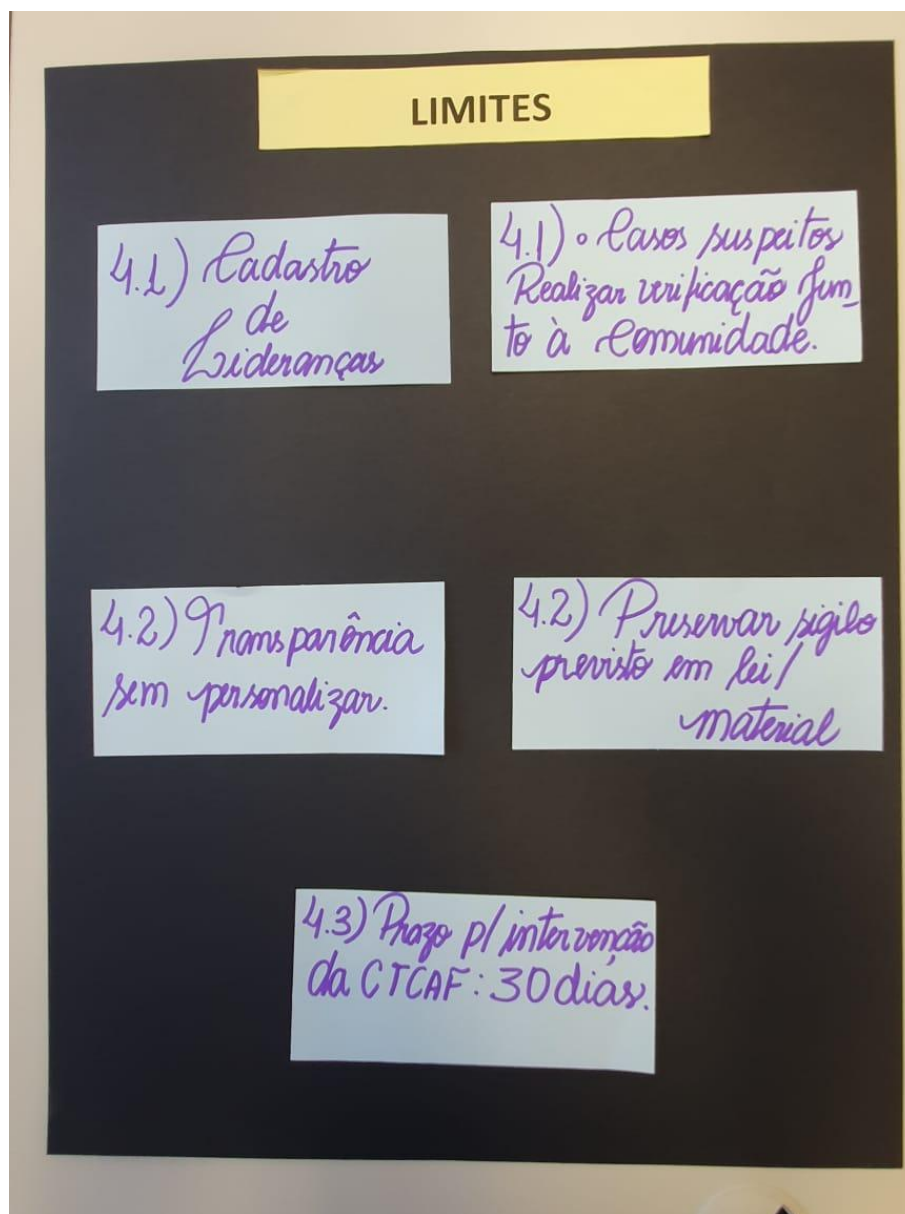 LIMITES
4.1) Cadastro
de
Lideranças
4.1) • Casos suspeitos
Realizar verificação jun_
to à Comunidade.
4.2) Transparência
sem personalizar.
4.2) Preservar sigilo
previsto em lei/
material
4.3) Prazo p/ intervenção
da CTCAF: 30 dias.